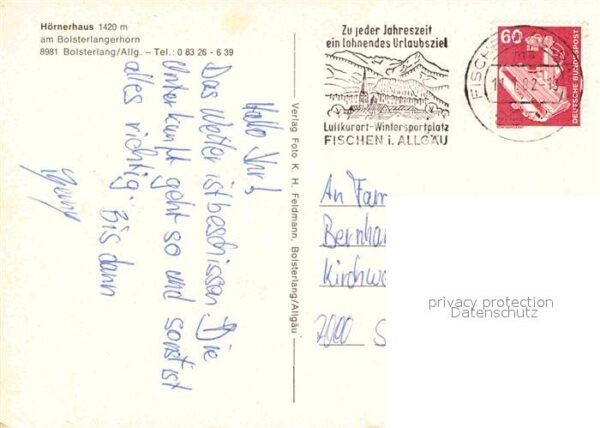 Hörnerhaus 1420 m
am Bolsterlangerhorn
8981 Bolsterlang/Allg. – Tel.: 0 83 26 - 6 39
Hallo Ihr!
Das Wetter ist beschissen. Die
Unterkunft geht so und sonst ist
alles richtig. Bis dann
Verlag Foto K. H. Feldmann, Bolsterlang/Allgäu
Zu jeder Jahreszeit
ein lohnendes Urlaubsziel
Luftkurort-Wintersportplatz
FISCHEN i. ALLGÄU
FISCHE
60
DEUTSCHE BUNDESPOST
An Fam
Bernha
Kirchwe
7000 S
privacy protection
Datenschutz